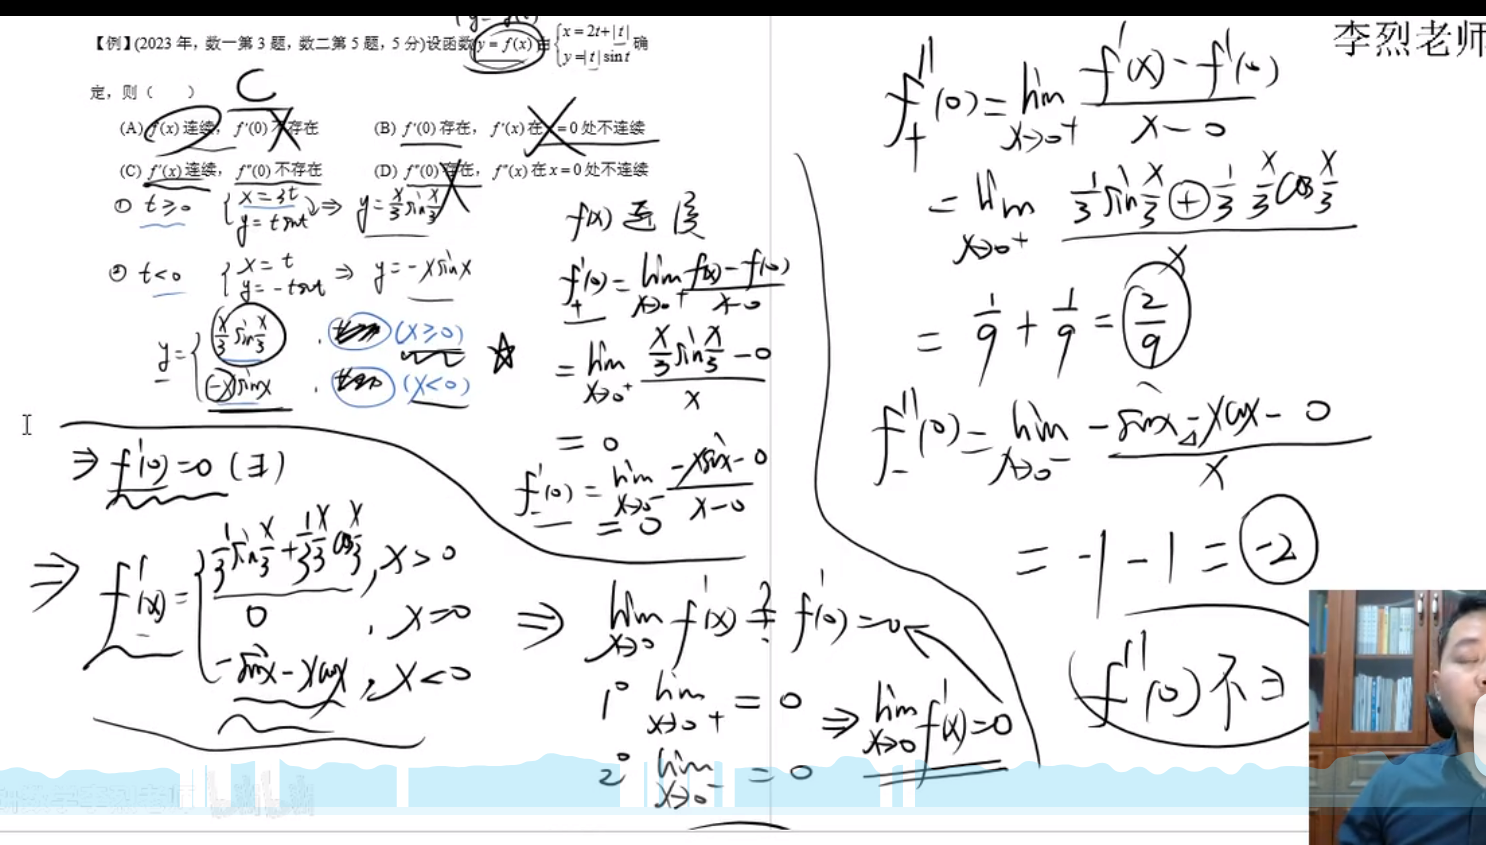 【例】(2023 年, 数一第 3 题, 数二第 5 题, 5 分) 设函数 y = f(x) 由 { x = 2t+|t| 确
y =|t| sin t
定, 则 ( ) C
(A) f(x) 连续, f′(0) 不存在 (B) f′(0) 存在, f′(x) 在 x = 0 处不连续
(C) f′(x) 连续, f″(0) 不存在 (D) f″(0) 存在, f″(x) 在 x = 0 处不连续
① t≥0 { x = 3t
y = t sint ⇒ y = x/3 sin x/3
② t<0 { x = t
y = -t sint ⇒ y = -x sinx
y = { x/3 sin x/3 , (x≥0)
-x sinx , (x<0) ☆
⇒ f′(0) = 0 (∃)
⇒ f′(x) = { 1/3 sin x/3 + 1/3 x/3 cos x/3 , x>0
0 , x=0
-sinx - xcosx , x<0
f(x) 连续
f′₊(0) = lim x→0⁺ f(x)-f(0) / x-0
= lim x→0⁺ x/3 sin x/3 - 0 / x
= 0
f′₋(0) = lim x→0⁻ -xsinx-0 / x-0
= 0
⇒ lim x→0 f′(x) ?= f′(0) = 0
1° lim x→0⁺ = 0
2° lim x→0⁻ = 0
⇒ lim x→0 f′(x) = 0
李烈老师
f″₊(0) = lim x→0⁺ f′(x) - f′(0) / x-0
= lim x→0⁺ 1/3 sin x/3 + 1/3 x/3 cos x/3 / x
= 1/9 + 1/9 = 2/9
f″₋(0) = lim x→0⁻ -sinx - xcosx - 0 / x
= -1 - 1 = -2
f″(0) 不∃